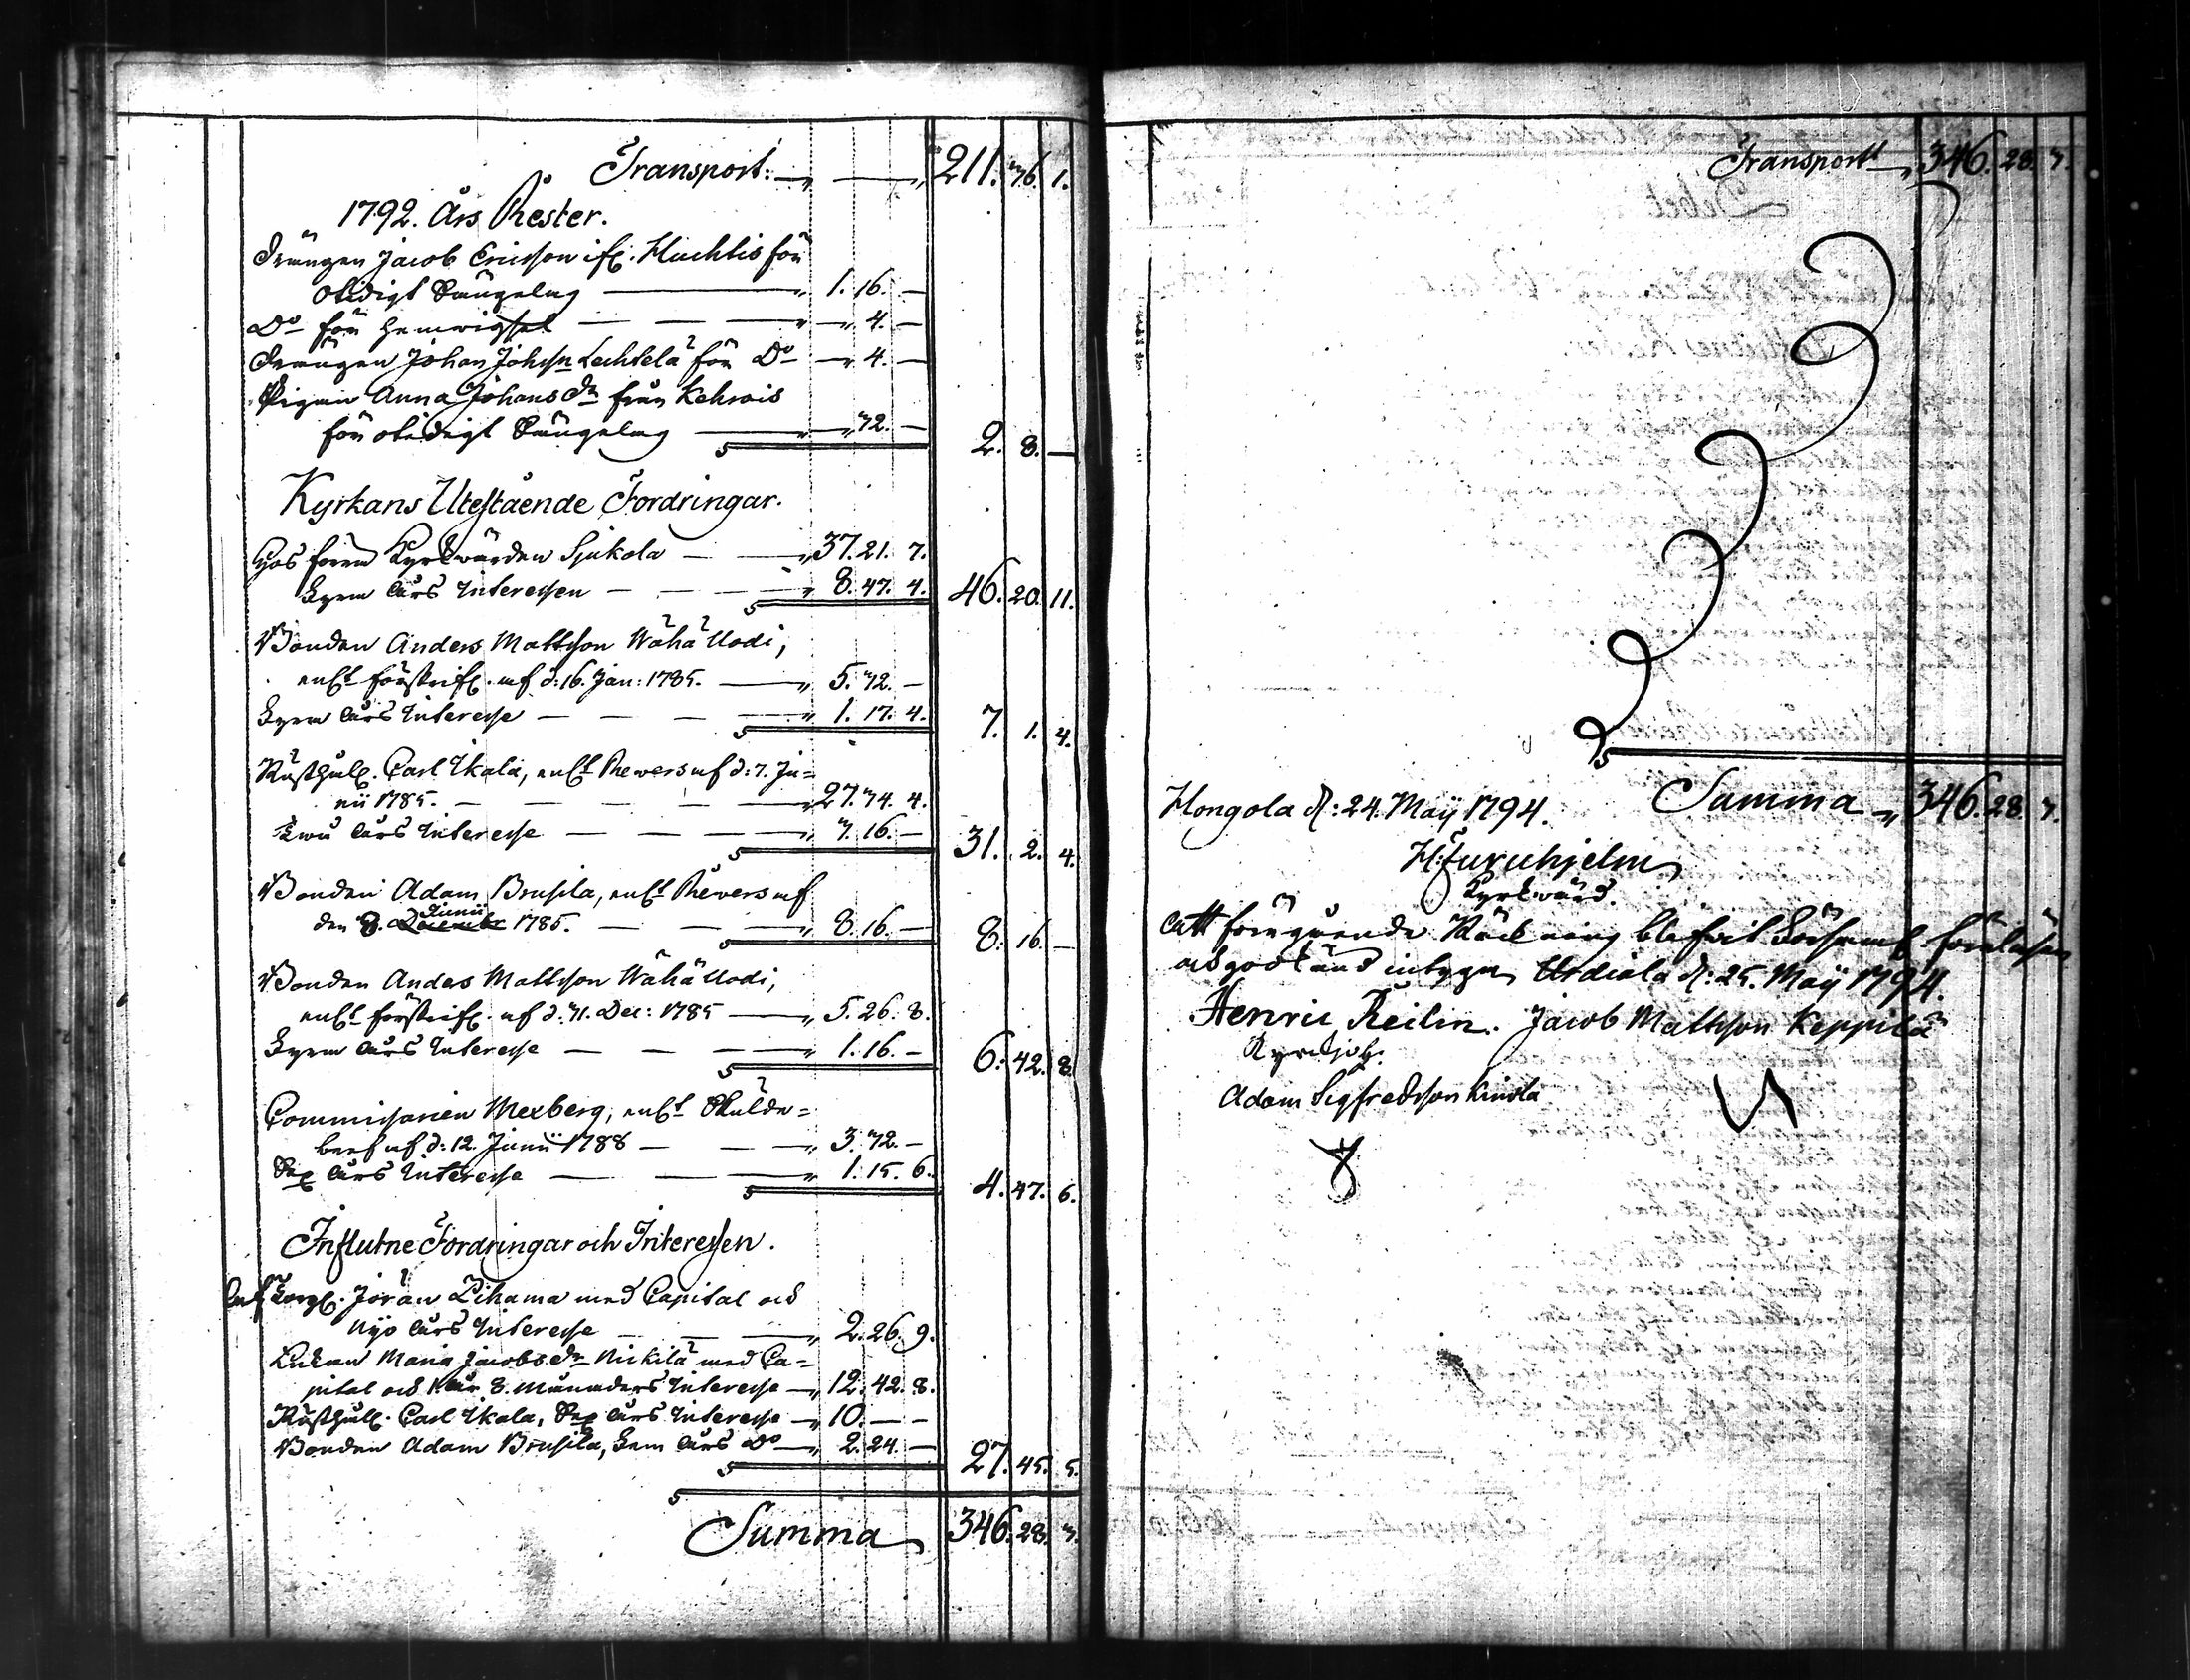 Transport: 211. 46. 1.
1792. Års Rester.
Drängen Jacob Ericsson ifr. Huchtis för
otidigt Sängelag 1. 16. —
Do för hemwigsel — 4. —
Drängen Johan Johsn Lechtelä för Do — 4. —
Pigan Anna Johans dr från Kehrois
för otidigt Sängelag — 32. — 2. 8. —
Kyrkans Utestående Fordringar.
Hos förra Kyrkwärden Sjukola 37. 21. 7.
Fyra Års Interessen 8. 47. 4. 46. 20. 11.
Bonden Anders Mattsson Wähä Uodi,
enl:t förskrifn. af d: 16. Jan: 1785. 5. 32. —
Fyra Års Interesse 1. 17. 4. 7. 1. 4.
Rusthåll. Carl Ikala, enl:t Revers af d: 7. Ju=
nii 1785. 27. 34. 4.
Twå Års Interesse 3. 16. — 31. 2. 4.
Bonden Adam Brusila, enl:t Revers af
den 8. Junii 1785. 8. 16. — 8. 16. —
Bonden Anders Mattsson Wähä Uodi,
enl:t förskrifn. af d: 31. Dec: 1785 5. 26. 8.
Fyra Års Interesse 1. 16. — 6. 42. 8.
Commissarien Mexberg, enl:t Skulde=
bref af d: 12. Junii 1788 3. 32. —
Sex Års Interesse 1. 15. 6. 4. 47. 6.
Influtne Fordringar och Interessen.
Af Torp. Jöran Pihama med Capital och
nijo Års Interesse 2. 26. 9.
Enkan Maria Jacobs dr Nickilä med Ca=
pital och 1 år 8. månaders Interesse 12. 42. 8.
Rusthåll. Carl Ikala, Sex Års Interesse 10. — —
Bonden Adam Brusila, fem Års Do 2. 24. — 27. 45. 5.
Summa 346. 28. 7.
Transport 346. 28. 7.
Summa 346. 28. 7.
Hongola d: 24. Maij 1794.
H: Furuhjelm
Kyrkwärd.
Att föregående Räkning blifvit Församl. föreläsen
och godkänd intyga, Urdiala d: 25. Maij 1794.
Henric Reilin. Jacob Mattsson Keppilä
Adam Sigfredsson Kinola